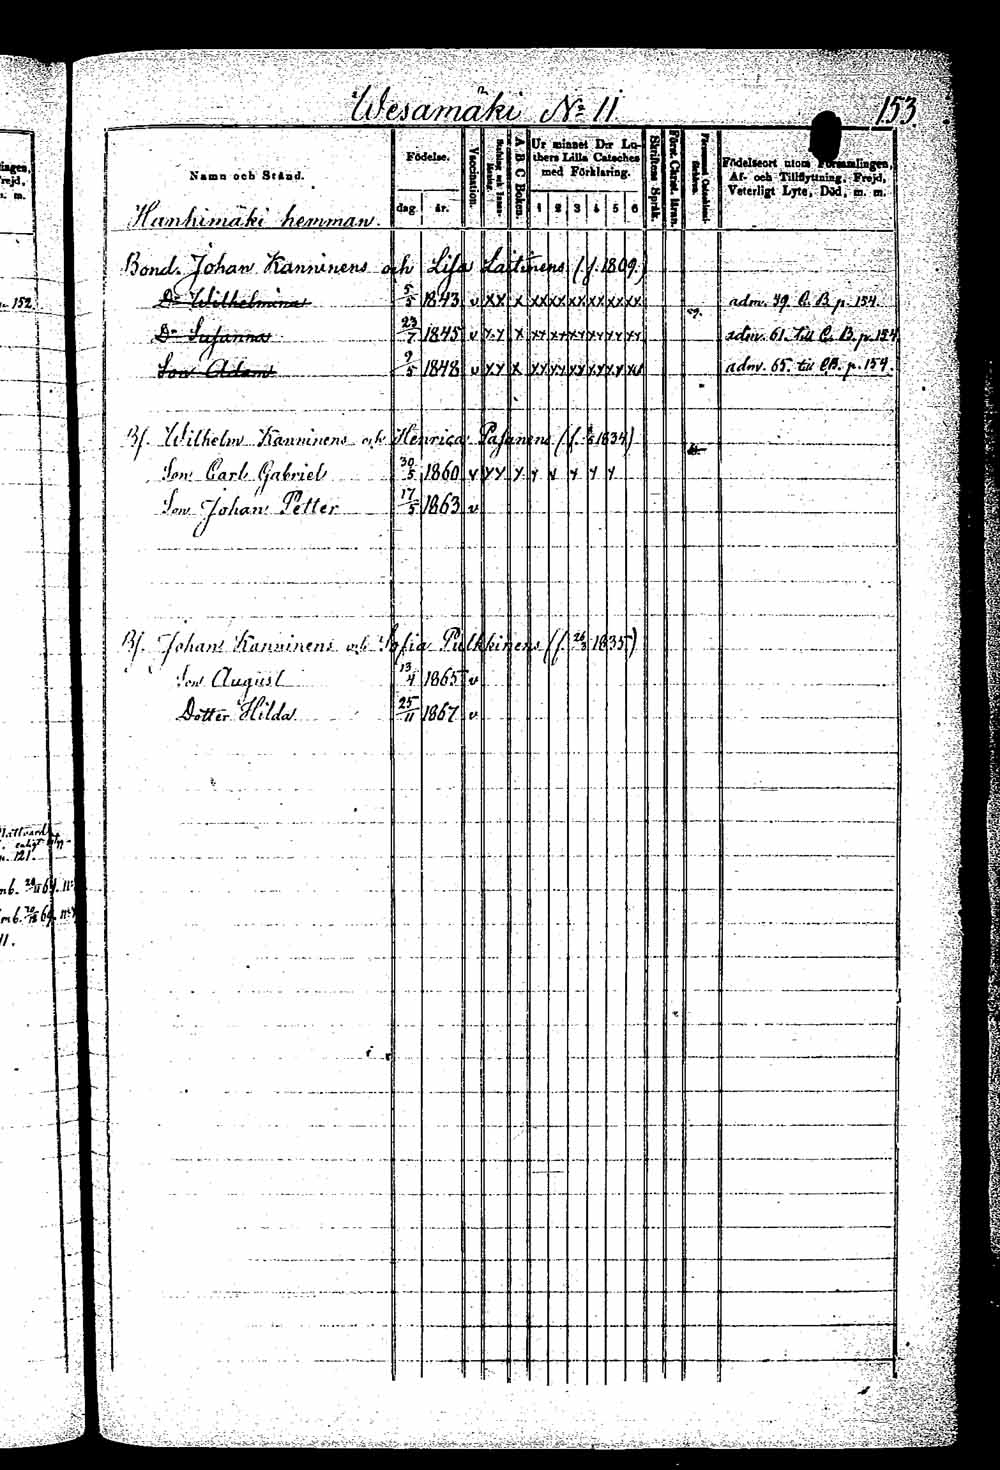 Wesamäki No 11. 153.
Namn och Stånd.
Födelse.
dag. år.
Vaccination.
A B C Boken.
Ur minnet D:r Lu-
thers Lilla Cateches
med Förklaring.
1 2 3 4 5 6
Skriftens Språk.
Först. Christ. läran.
Födelseort utom Församlingen,
Af- och Tillflyttning, Frejd,
Veterligt Lyte, Död, m. m.
Hanhimäki hemman.
Bond. Johan Kanninens och Lisa Laitinens (f. 1809.)
Dr Wilhelmina 5/5 1843 v xx x xx xx xx xx xx xx adm. 59. C. B. p. 154.
Dr Susanna 23/7 1845 v xx x xx xx xx xx xx xx adm. 61. till C. B. p. 154.
Son Adam 9/5 1848 v xx x xx xx xx xx xx xx adm. 65. till C.B. p. 154.
Bf. Wilhelm Kanninens och Henrica Pasanens (f. 1834)
Son Carl Gabriel 30/5 1860 v xx x x x x x x
Son Johan Petter 17/5 1863 v
Bf. Johans Kanninens och Sofia Pulkkinens (f. 26/3 1835)
Son August 13/4 1865 v
Dotter Hilda 25/11 1867 v
152.
n. 121.
11.